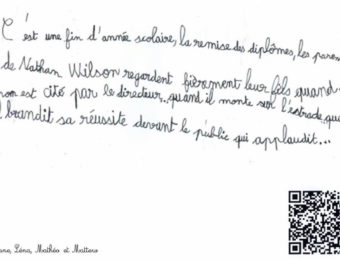 C'est une fin d'année scolaire, la remise des diplômes, les paren
de Nathan Wilson regardent fièrement leur fils quand
nom est cité par le directeur.. quand il monte sur l'estrade, qu
brandit sa réussite devant le public qui applaudit...
Léna, Mathéo et Matteo